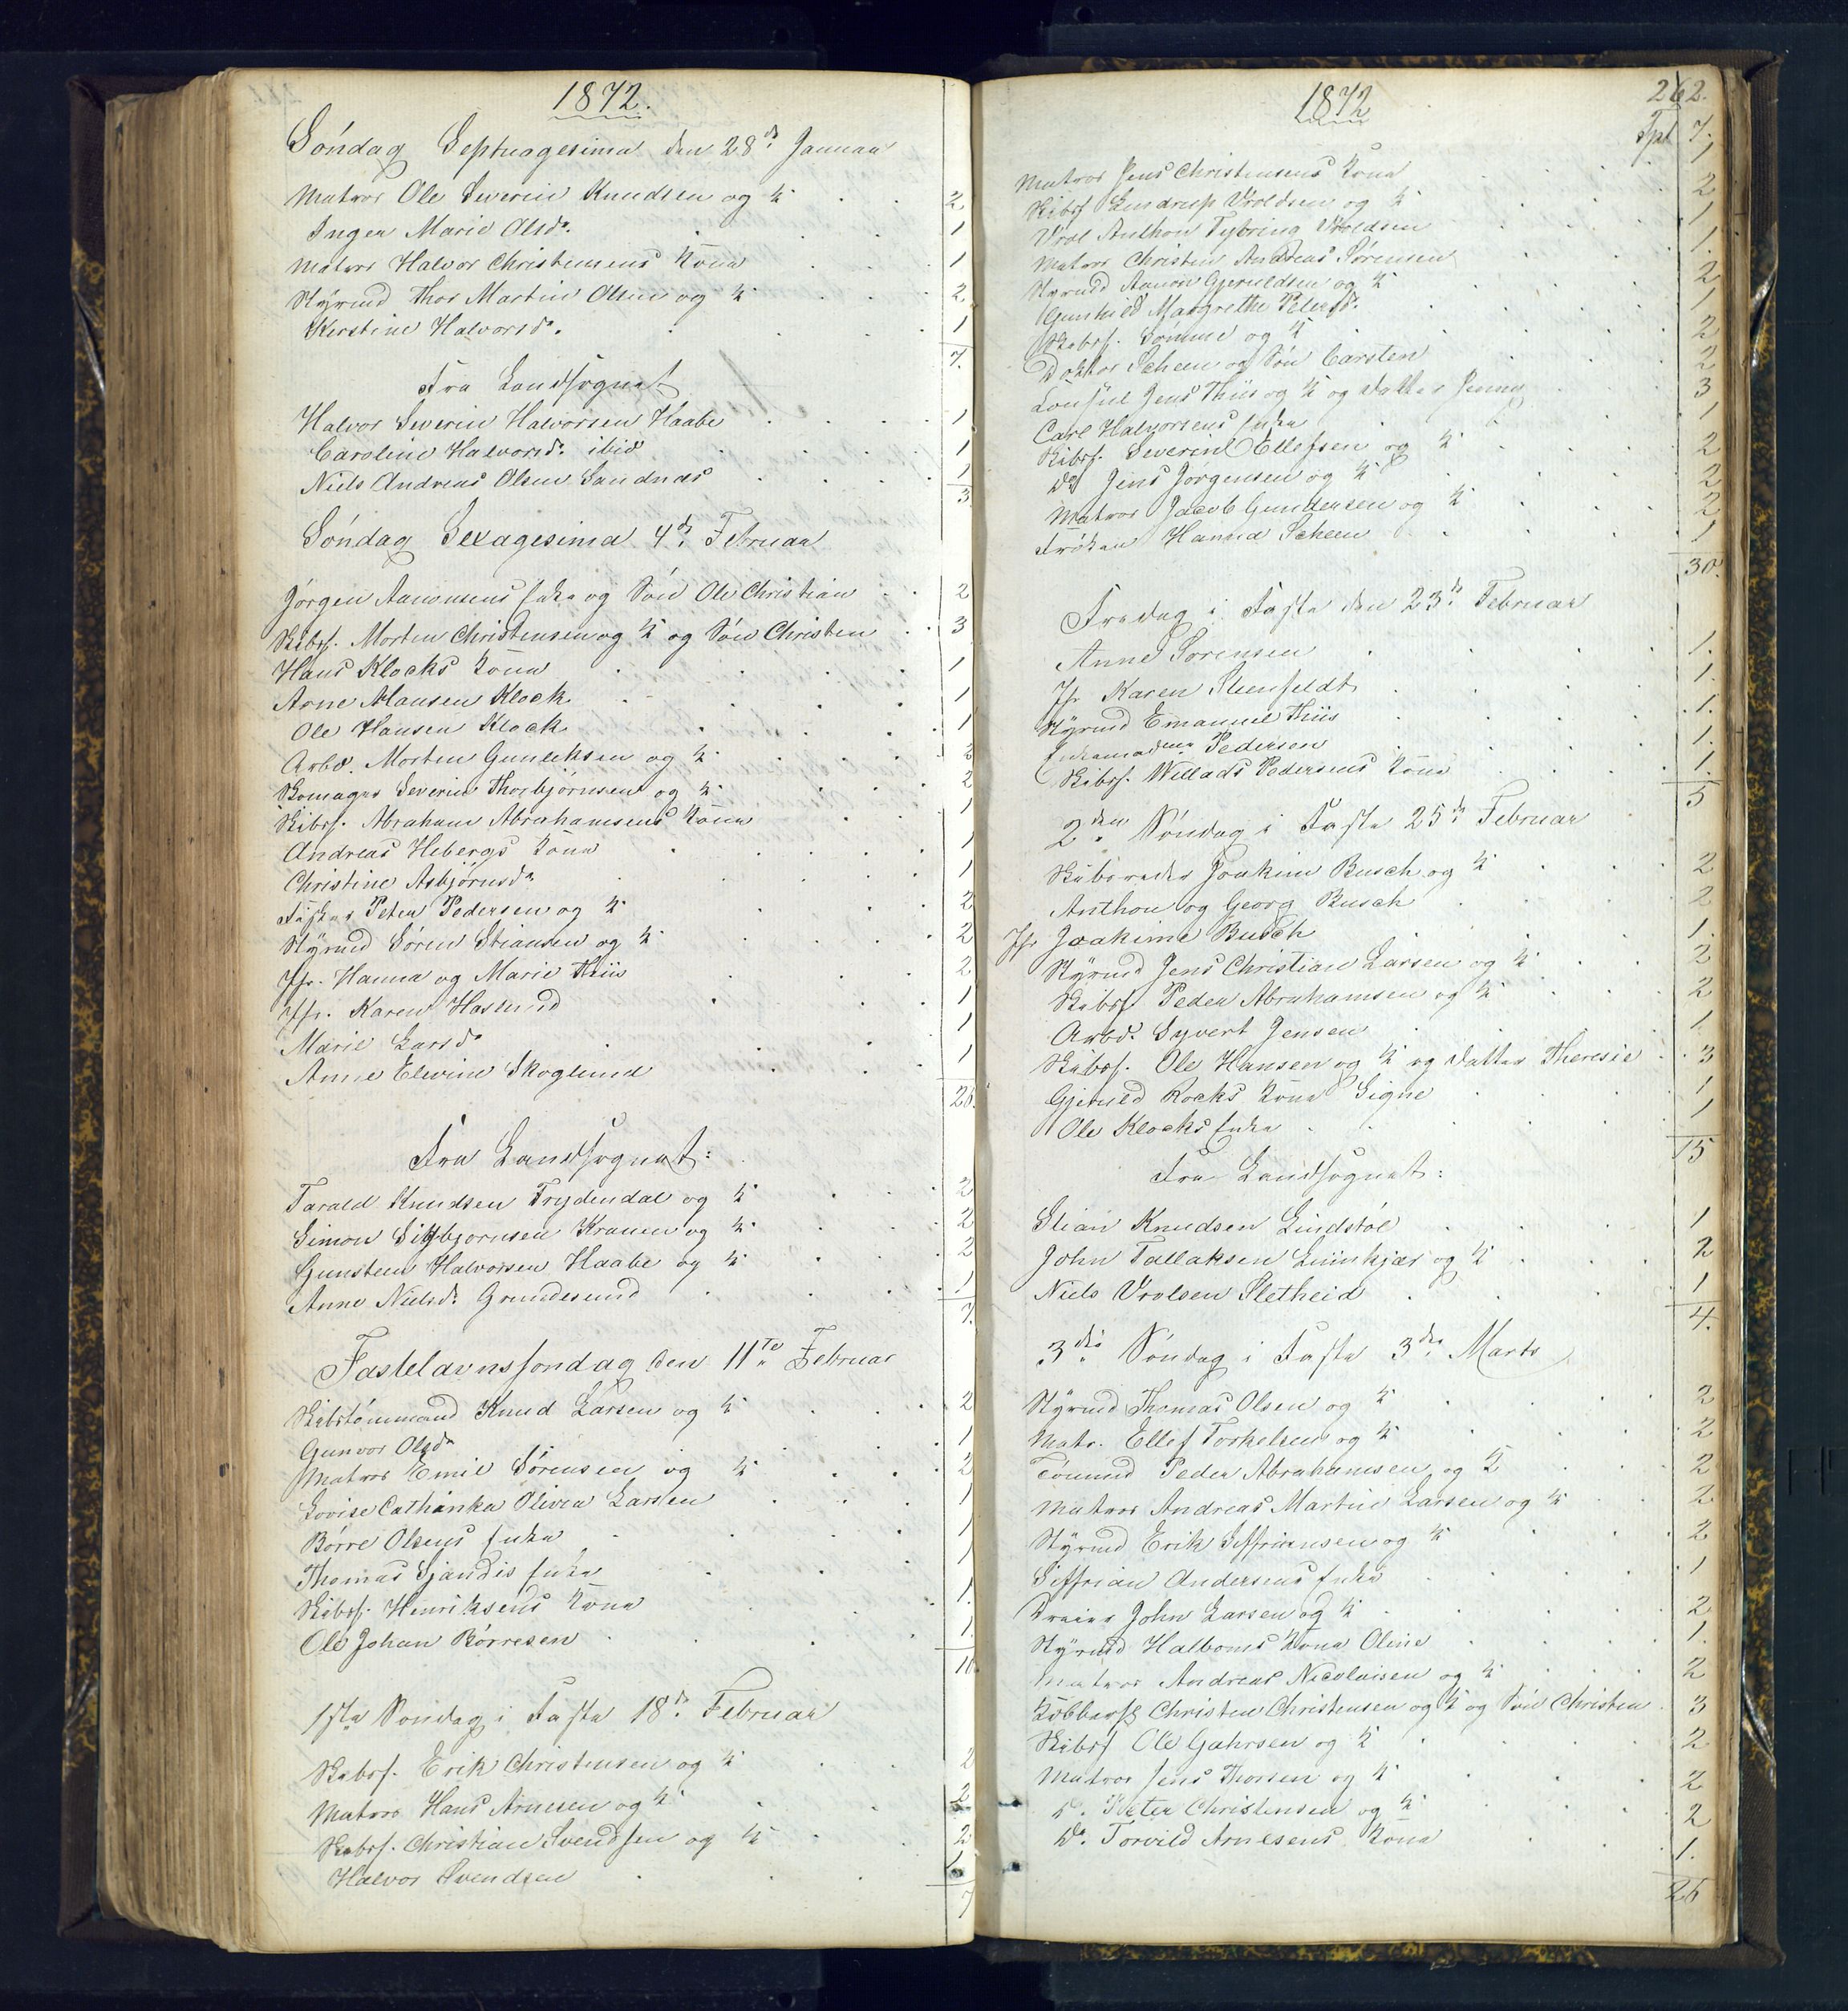 1872.
Søndag Septuagesima den 28de Januar
Matros Ole Severin Knudsen og K. 2
Inger Marie Olsdr. 1
Matros Halvor Christensens Kone 1
Styrmd Thor Martin Olsen og K. 2
Kirstine Halvorsdr. 1
7.
Fra Landsognet
Halvor Severin Halvorsen Haabe 1
Caroline Halvorsdr. ibid 1
Niels Andreas Olsen Sandnæs 1
3
Søndag Sexagesima 4de Februar
Jørgen Aanonsens Enke og Søn Ole Christian 2
Skibsf. Morten Christensen og K og Søn Christen 3
Hans Klocks Kone 1
Arne Hansen Klock 1
Ole Hansen Klock 1
Arbd. Morten Gunleksen og K. 2
Skomager Severin Thorbjørnsen og K. 2
Skibsf. Abraham Abrahamsens Kone 1
Andreas Hebergs Kone 1
Christine Asbjørnsdr. 1
Fisker Peter Pedersen og K. 2
Styrmd Søren Stiansen og K. 2
Jfr. Hanna og Marie Thiis 2
Jfr. Karen Haslund 1
Marie Larsdr 1
Anne Elevine Skoglund 1
26.
Fra Landsognet:
Tarald Knudsen Frydendal og K. 2
Simon Sigbjørnsen Kranen og K. 2
Gunsteen Halvorsen Haabe og K. 2
Anne Nielsdr. Grundesund 1
7.
Fastelavnssøndag den 11te Februar
Skibstømmand Knud Larsen og K. 2
Gunvor Olsdr 1
Matros Emil Sørensen og K. 2
Lovise Cathinka Olivia Larsen 1
Børre Olsens Enke 1
Thomas Sjandis Enke 1
Skibsf. Henriksens Kone 1.
Ole Johan Børresen 1.
10.
1ste Søndag i Faste 18de Februar
Skibsf. Erik Christensen og K. 2
Matros Hans Arnesen og K. 2
Skibsf. Christian Svendsen og K. 2
Halvor Svendsen 1
7
1872
262.
Tpt 7.
Matros Jens Christensens Kone 1
Skibsf Lindrup Vroldsen og K. 2
Vrol Anthon Tybring Vroldsen 1
Matros Christen Andreas Sørensen 1.
Styrmd Aanon Gjeruldsen og K 2
Gunhild Margrethe Petersd. 1
Skibsf. Somme og K 2
Doktor Scheen og Søn Carsten 2
Konsul Jens Thiis og K og Datter Jenny 3
Carl Halvorsens Enke 1
Skibsf. Severin Ellefsen og K. 2
Do Jens Jørgensen og K. 2
Matros Jacob Gundersen og K. 2
Frøken Hanna Scheen 1
30.
Fredag i Faste den 23de Februar
Anne Sørensen 1.
Jfr Karen Steenfeldt 1.
Styrmd Emanuel Thiis 1.
Enkemadme Pedersen 1.
Skibsf. Willads Pedersens Kone 1.
5
2den Søndag i Faste 25de Februar
Skibsreder Joakim Busch og K. 2
Anthon og Georg Busch 2
Jfr Joakime Busch 1.
Styrmd Jens Christian Larsen og K. 2
Skibsf. Peder Abrahamsen og K. 2
Arbd. Syvert Jensen 1.
Skibsf. Ole Hansen og K og Datter Theresie 3
Gjeruld Rocks Kone Signe 1
Ole Klocks Enke 1
15
Fra Landsognet:
Stian Knudsen Lindstøl 1
John Tallaksen Liinkjær og K 2
Niels Vrolsen Sletheid 1
4.
3die Søndag i Faste 3die Marts
Styrmd Thomas Olsen og K. 2
Matr. Ellef Torkelsen og K. 2
Tømmd Peder Abrahamsen og K 2
Matros Andreas Martin Larsen og K. 2
Styrmd Erik Siffriansen og K. 2
Siffrian Andersens Enke 1
Dreier John Larsen og K. 2
Styrmd Halboms Kone Oline 1.
Matros Andreas Nicolaisen og K. 2
Kobbersl Christen Christensen og K og Søn Christen 3
Skibsf Ole Gahrsen og K. 2
Matros Jens Thorsen og K. 2
Do. Peter Christensen og K. 2
Do. Torvild Arnesens Kone 1.
26